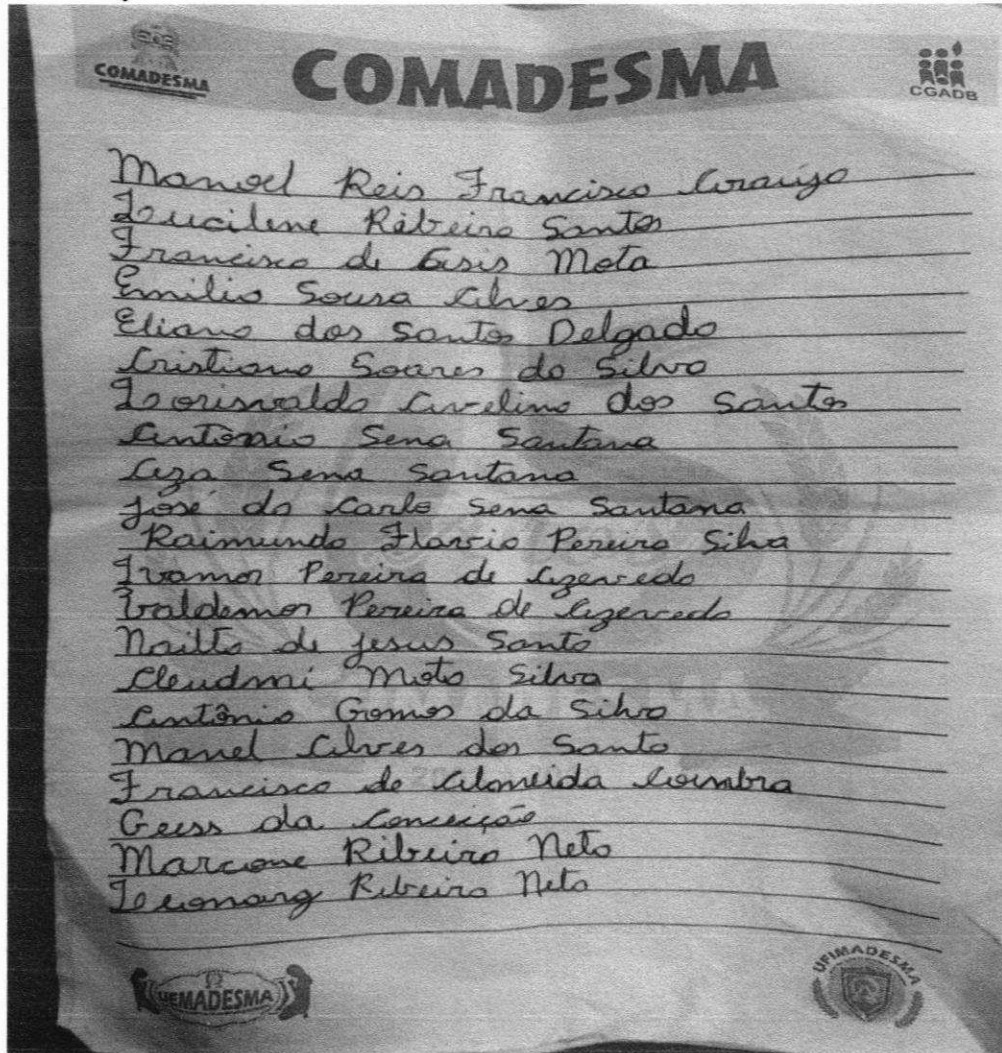 COMADESMA
COMADESMA
CGADB
Manoel Reis Francisco Araújo
Lucilene Ribeiro Santos
Francisco de Assis Mota
Emilio Sousa Alves
Eliano dos Santos Delgado
Cristiano Soares do Silva
Lorisvaldo Avelino dos Santos
Antônio Sena Santana
Aza Sena Santana
José do Carlo Sena Santana
Raimundo Flavio Pereira Silva
Ivamor Pereira de Azevedo
Valdemor Pereira de Azevedo
Nailto de Jesus Santo
Cleudmi Moto Silva
Antônio Gomes da Silva
Manel Alves dos Santo
Francisco de Almeida Coimbra
Geess da Conceição
Marcone Ribeiro Neto
Leonarg Ribeiro Neto
UEMADESMA
UFIMADESMA